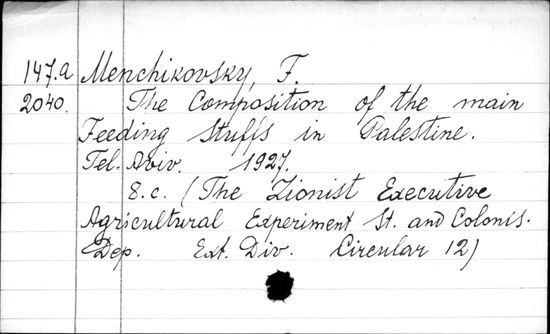 147.a Menchikovsky, F.
2040. The Composition of the main
Feeding Stuffs in Palestine.
Tel. Aviv. 1927.
8.c. (The Zionist Executive
Agricultural Experiment St. and Colonis.
Dep. Ext. Div. Circular 12)